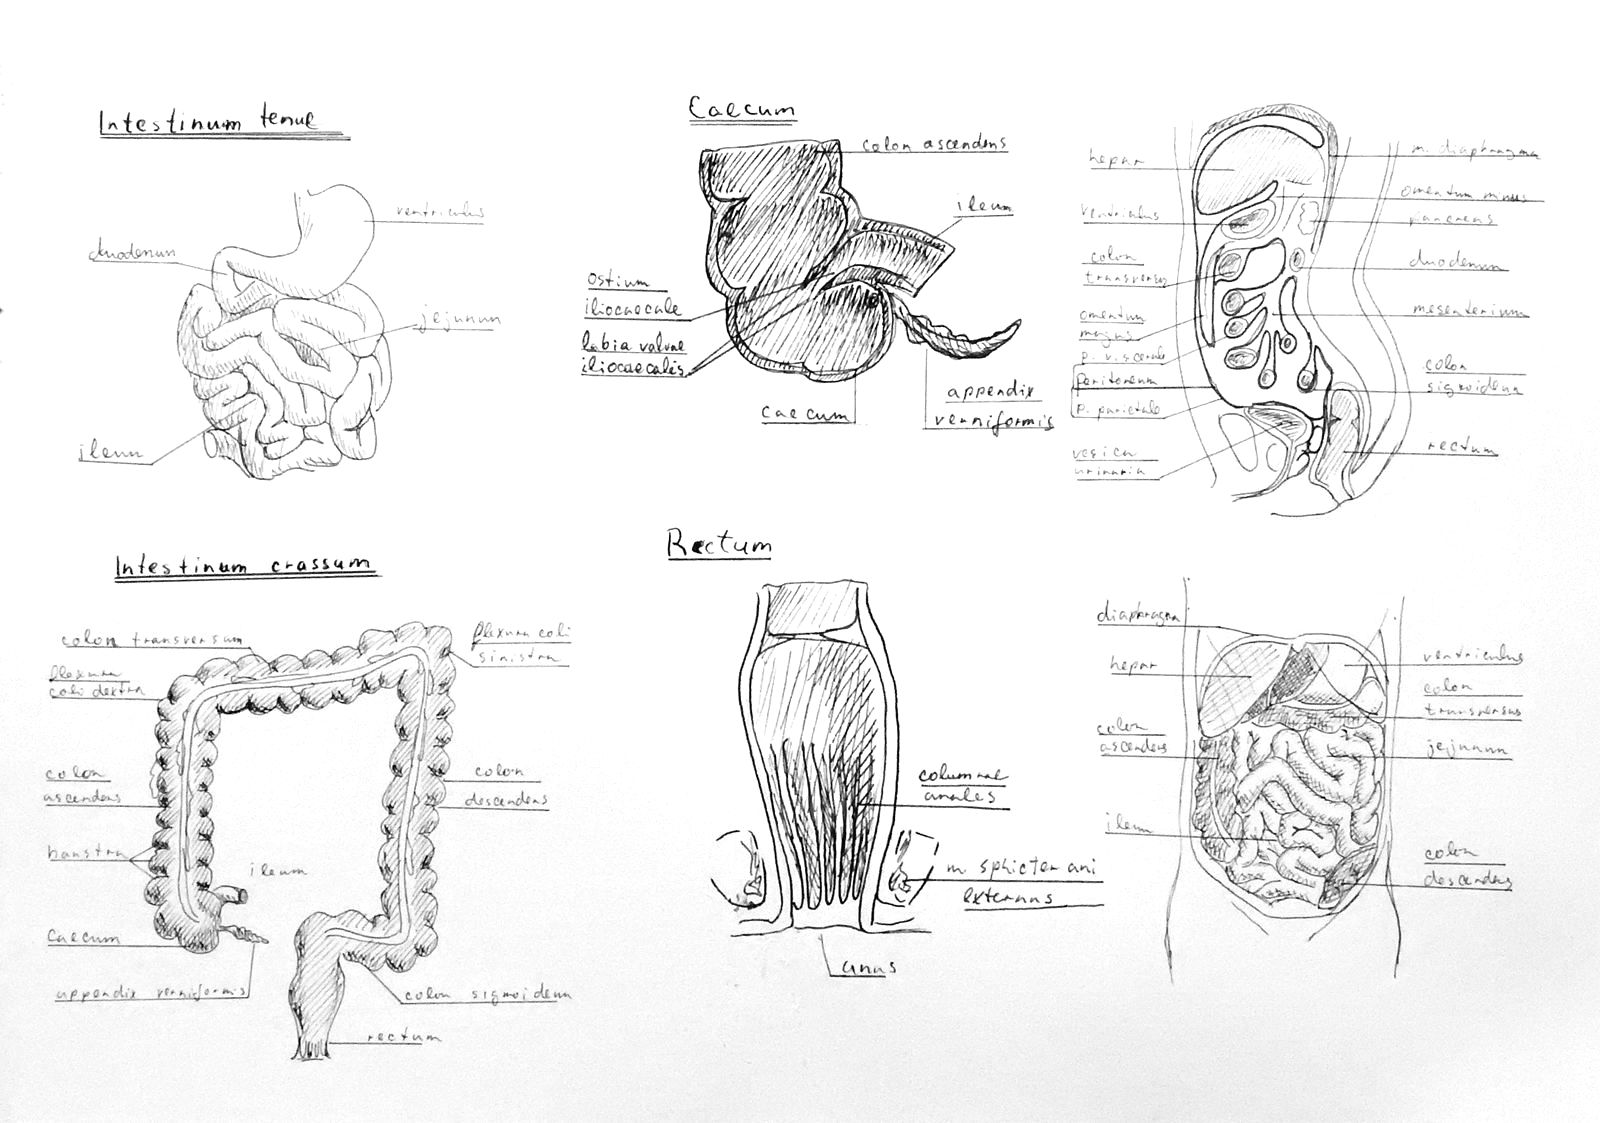 Intestinum tenue
ventriculus
duodenum
jejunun
ileun
Caecum
colon ascendens
ileum
Ostium
iliocaecale
labia valvae
iliocaecalis
caecum
appendix
verniformis
hepar
ventriculus
colon
transversus
omentum
magus
p. viscerale
peritoneum
p. parietale
vesica
urinaria
m. diaphragma
omentum minus
pancreas
duodenum
mesenterium
colon
sigmoideun
rectum
Intestinum crassum
colon transversum
flexura
coli dextra
colon
ascendens
haustra
caecum
appendix verniformis
flexura coli
sinistra
colon
descendens
ileum
colon sigmoideun
rectum
Rectum
columnae
anales
m. sphicter ani
externus
anus
diaphragma
hepar
colon
ascendens
ileum
ventriculus
colon
transversus
jejunun
colon
descendens